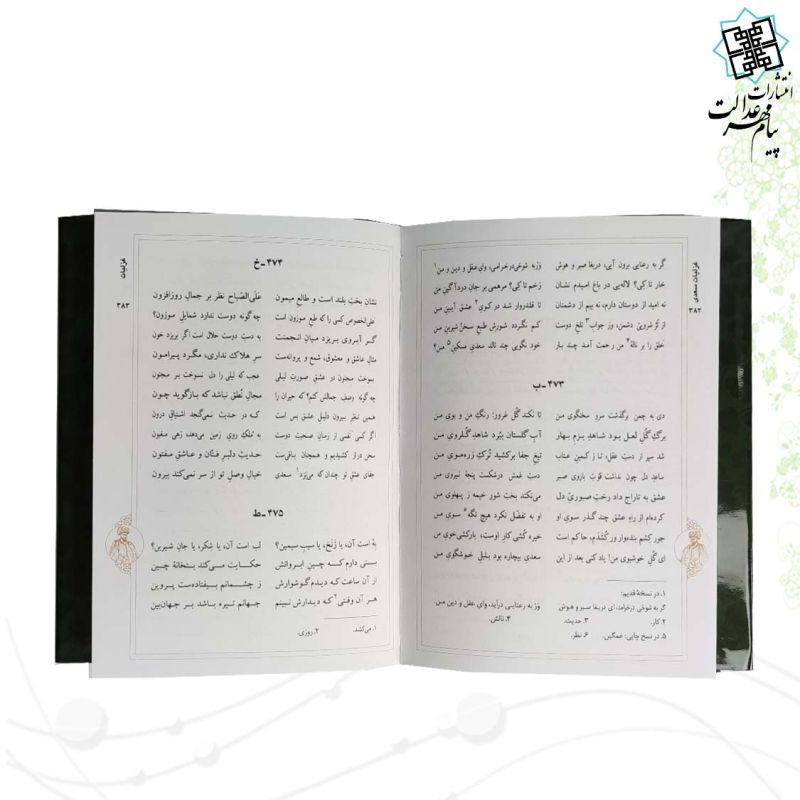 انتشارات
پیام مهر عدالت
غزلیات سعدی
۳۸۲
گر به رعنایی برون آیی، دریغا صبر و هوش
ور به شوخی در خرامی، وای عقل و دین و من۱
خار تا کی؟ لاله‌یی در باغ امیدم نشان
زخم تا کی؟ مرهمی بر جان دردآگین من
نه امید از دوستان دارم، نه بیم از دشمنان
تا قلندروار شد در کوی۲ عشق آیین من
از تُرُش‌رویی دشمن، وز جواب۳ تلخ دوست
کم نگردد شورش طبع سخن‌شیرین من
خلق را بر نالهٔ۴ من رحمت آمد چند بار
خود نگویی چند نالد سعدی مسکین۵ من؟
۴۷۳ـب
دی به چمن برگذشت سرو سخنگوی من
تا نکند گل غرور: رنگ من و بوی من
برگ گل لعل بود شاهد بزم بهار
آب گلستان ببُرد شاهد گلروی من
شد سپر از دست عقل، تا ز کمین عتاب
تیغ جفا برکشید تُرک زره‌موی من
ساعد دل چون نداشت قوّت بازوی صبر
دست غمش درشکست پنجهٔ نیروی من
عشق به تاراج داد رخت صبوری دل
می‌نکند بخت شور خیمه ز پهلوی من
کرده‌ام از راه عشق چند گذر سوی او
او به تفضّل نکرد هیچ نگه۶ سوی من
جور کشم بنده‌وار ور کُشَدم، حاکم است
خیره‌کُشی کار اوست، بارکشی خوی من
ای گل خوشبوی من! یاد کنی بعد از این
سعدی بیچاره بود بلبل خوشگوی من
۱. در نسخهٔ قدیم:
گر به شوخی درخرامد، ای دریغا صبر و هوش
ور به رعنایی درآید، وای عقل و دین من
۲. کار.
۳. حدیث.
۴. نالش.
۵. در نسخ چاپی: غمگین.
۶. نظر.
غزلیات
۳۸۳
۴۷۴ـخ
نشان بخت بلند است و طالع میمون
علی‌الصّباح نظر بر جمال روزافزون
علی‌الخصوص کسی را که طبع موزون است
چه‌گونه دوست ندارد شمایل موزون؟
گر آبروی بریزد میان انجمنت
به دست دوست حلال است اگر بریزد خون
مثال عاشق و معشوق، شمع و پروانه‌ست
سر هلاک نداری، مگرد پیرامون
بسوخت مجنون در عشق صورت لیلی
عجب که لیلی را دل نسوخت بر مجنون
چه‌گونه وصف جمالش کنم؟ که حیران را
مجال نطق نباشد که بازگوید چون
همین تغیّر بیرون دلیل عشق بس است
که در حدیث نمی‌گنجد اشتیاق درون
اگر کسی نفسی از زمان صحبت دوست
به مُلک روی زمین می‌دهد، زهی مغبون
سخن دراز کشیدیم و همچنان باقی‌ست
حدیث دلبر فتّان و عاشق مفتون
جفای عشق تو چندان که می‌برَد۱ سعدی
خیال وصل تو از سر نمی‌کند بیرون
۴۷۵ـط
بِه است آن، یا زَنَخ، یا سیب سیمین؟
لب است آن، یا شکر، یا جان شیرین؟
بتی دارم که چین ابروانش
حکایت می‌کند بتخانهٔ چین
از آن ساعت که دیدم گوشوارش
ز چشمانم بیفتاده‌ست پروین
هر آن وقتی۲ که دیدارش نبینم
جهانم تیره باشد بر جهان‌بین
۱. می‌کشد.
۲. روزی.